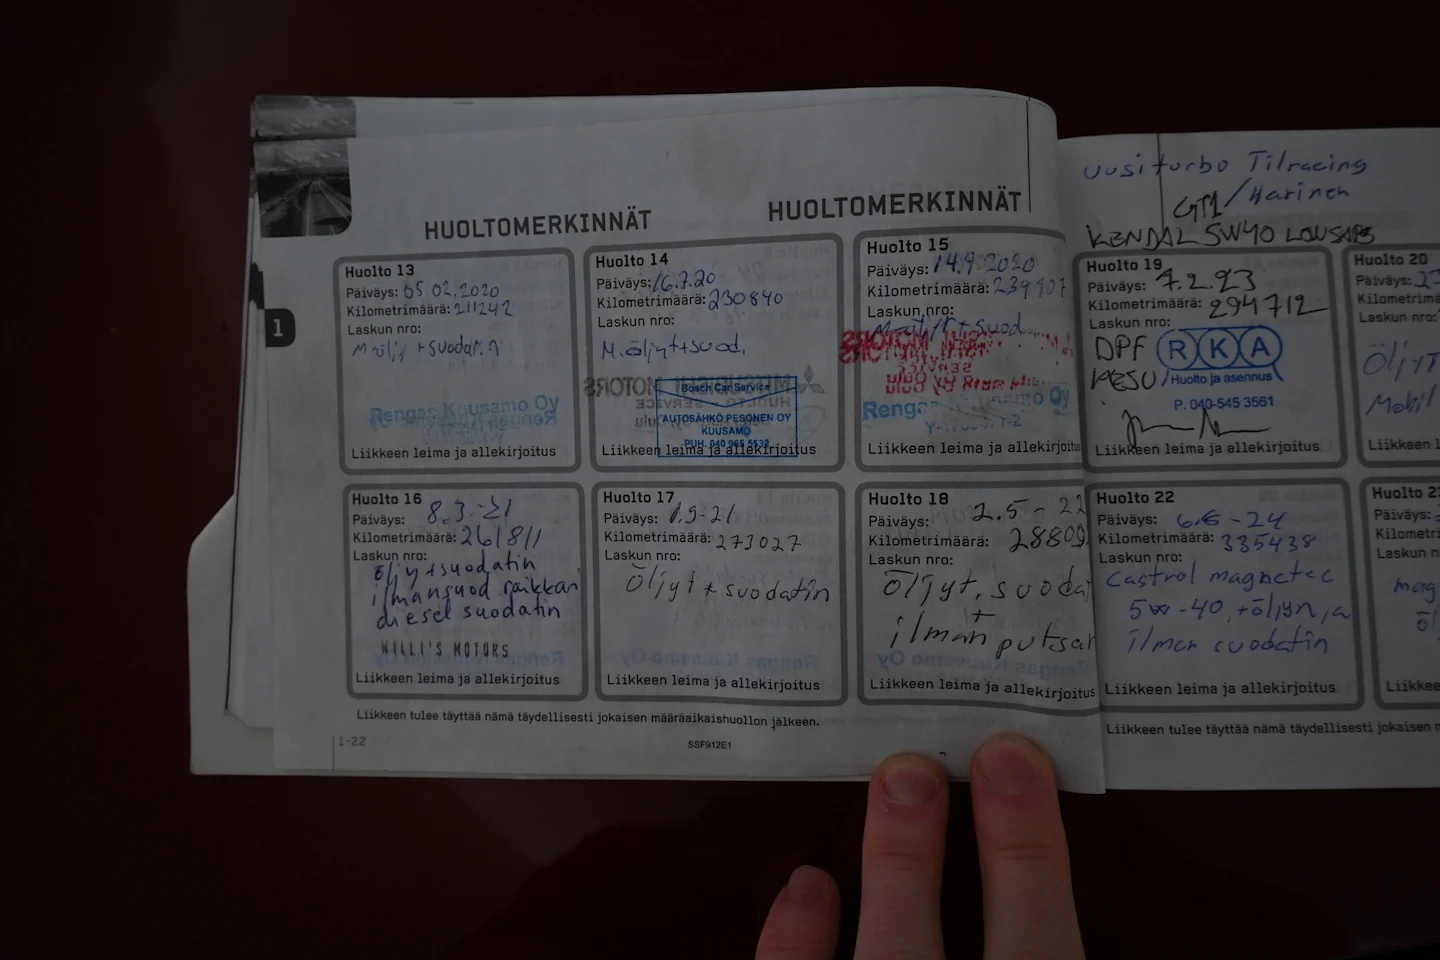 HUOLTOMERKINNÄT
HUOLTOMERKINNÄT
1
Huolto 13
Päiväys: 05.02.2020
Kilometrimäärä: 211242
Laskun nro:
M-öljy + suodatin
Rengas Kuusamo Oy
Liikkeen leima ja allekirjoitus
Huolto 14
Päiväys: 16.7.20
Kilometrimäärä: 230840
Laskun nro:
M.öljyt+suod.
Bosch Car Service
AUTOSÄHKÖ PESONEN OY
KUUSAMO
PUH. 040 965 5532
Liikkeen leima ja allekirjoitus
Huolto 15
Päiväys: 14.9.2020
Kilometrimäärä: 239107
Laskun nro:
M-öljyt + suod.
Rengas Kuusamo Oy
Liikkeen leima ja allekirjoitus
Huolto 16
Päiväys: 8.3.-21
Kilometrimäärä: 261811
Laskun nro:
öljy+suodatin
ilmansuod raikkari
diesel suodatin
WILLI'S MOTORS
Liikkeen leima ja allekirjoitus
Huolto 17
Päiväys: 1.9-21
Kilometrimäärä: 273027
Laskun nro:
Öljyt + suodatin
Liikkeen leima ja allekirjoitus
Huolto 18
Päiväys: 2.5-22
Kilometrimäärä: 28809
Laskun nro:
Öljyt, suoda
+
ilman putsar
Liikkeen leima ja allekirjoitus
Liikkeen tulee täyttää nämä täydellisesti jokaisen määräaikaishuollon jälkeen.
1-22
SSF912E1
uusi turbo Tilracing
GT1/Harinen
KENDAL 5W40 LOWSAPS
Huolto 19
Päiväys: 7.2.23
Kilometrimäärä: 294712
Laskun nro:
DPF
PESU
RKA
Huolto ja asennus
P. 040-545 3561
Liikkeen leima ja allekirjoitus
Huolto 20
Päiväys: 2
Kilometrimä
Laskun nro:
Öljyt
Mobil
Liikkeen l
Huolto 22
Päiväys: 6.6-24
Kilometrimäärä: 335438
Laskun nro:
Castrol magnetec
5w-40, +öljyn, ja
ilman suodatin
Liikkeen leima ja allekirjoitus
Huolto 2
Päiväys:
Kilometri
Laskun n
mag
öl
Liikkee
Liikkeen tulee täyttää nämä täydellisesti jokaisen m